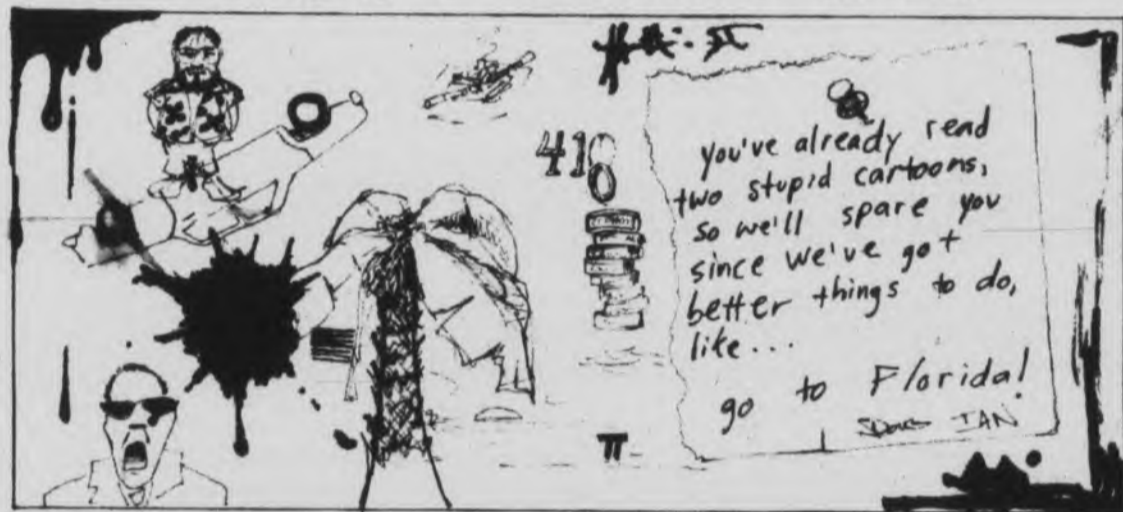 410
you've already read
two stupid cartoons,
so we'll spare you
since we've got
better things to do,
like...
go to Florida!
IAN
π